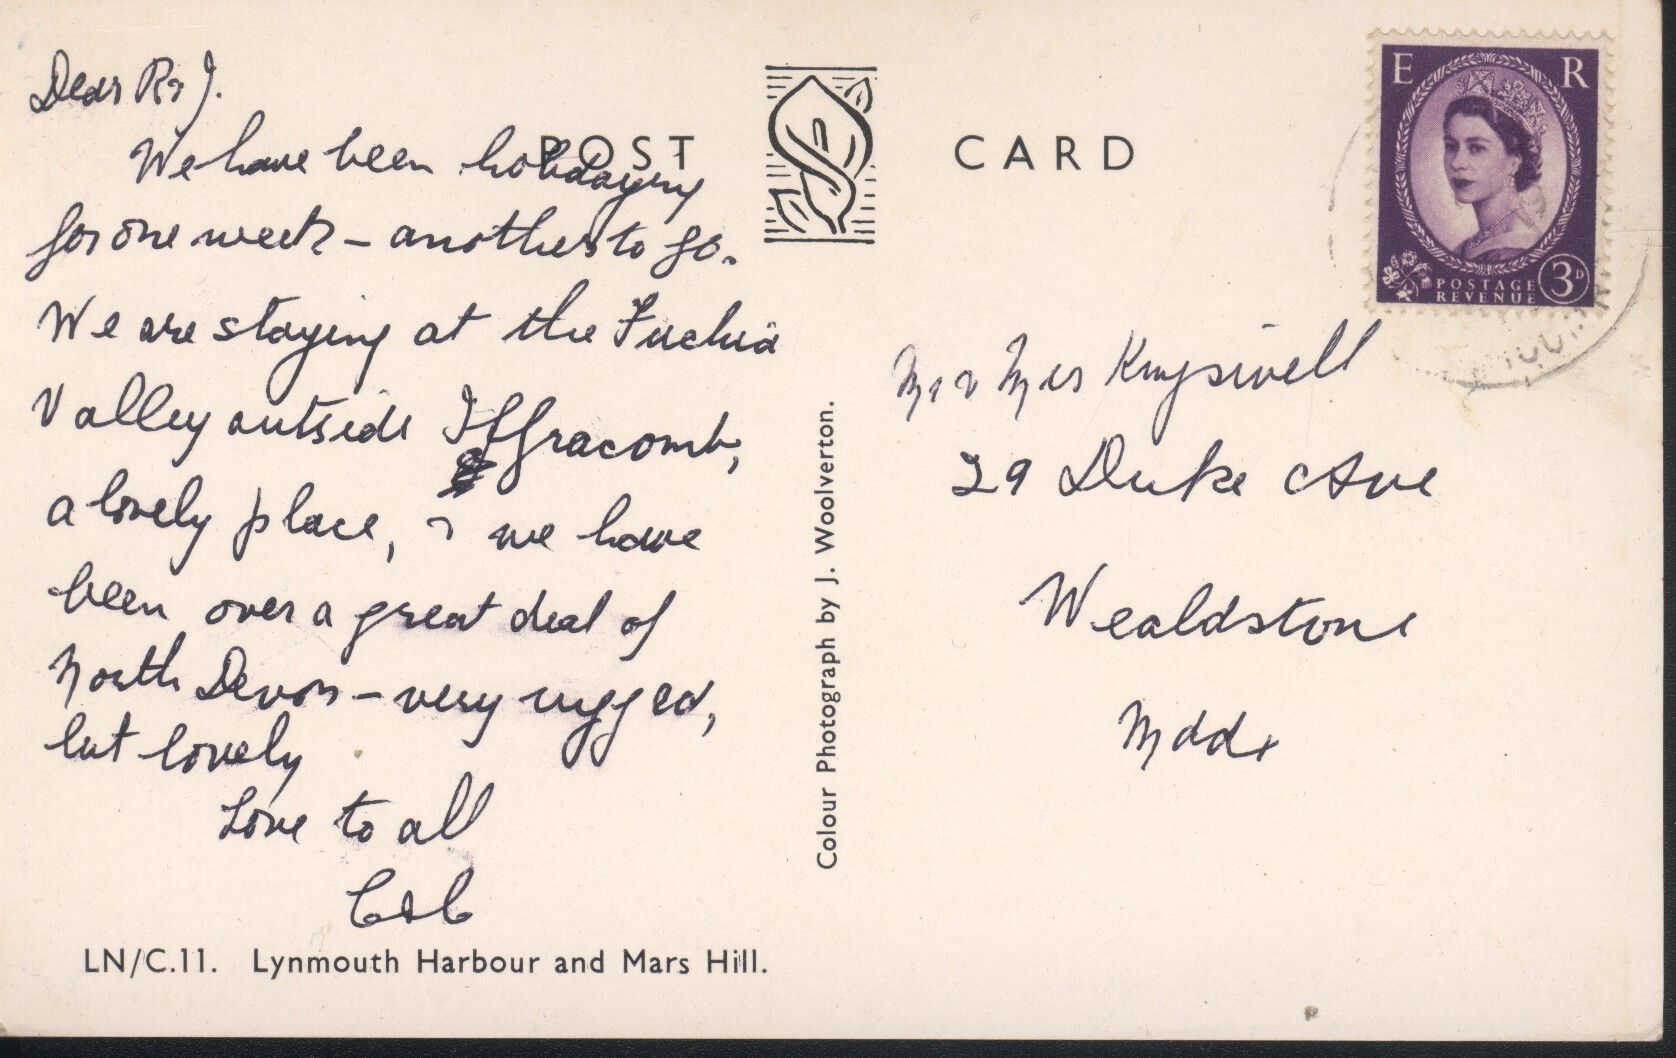 Dear R & J.
We have been holidaying
for one week – another to go.
We are staying at the Fuchia
Valley outside Ilfracomb,
a lovely place, & we have
been over a great deal of
North Devon – very rugged,
but lovely
Love to all
C & C
LN/C.11. Lynmouth Harbour and Mars Hill.
POST CARD
Colour Photograph by J. Woolverton.
E R
POSTAGE
REVENUE
3D
Mr & Mrs Kingswell
29 Duke Ave
Wealdstone
Mddx